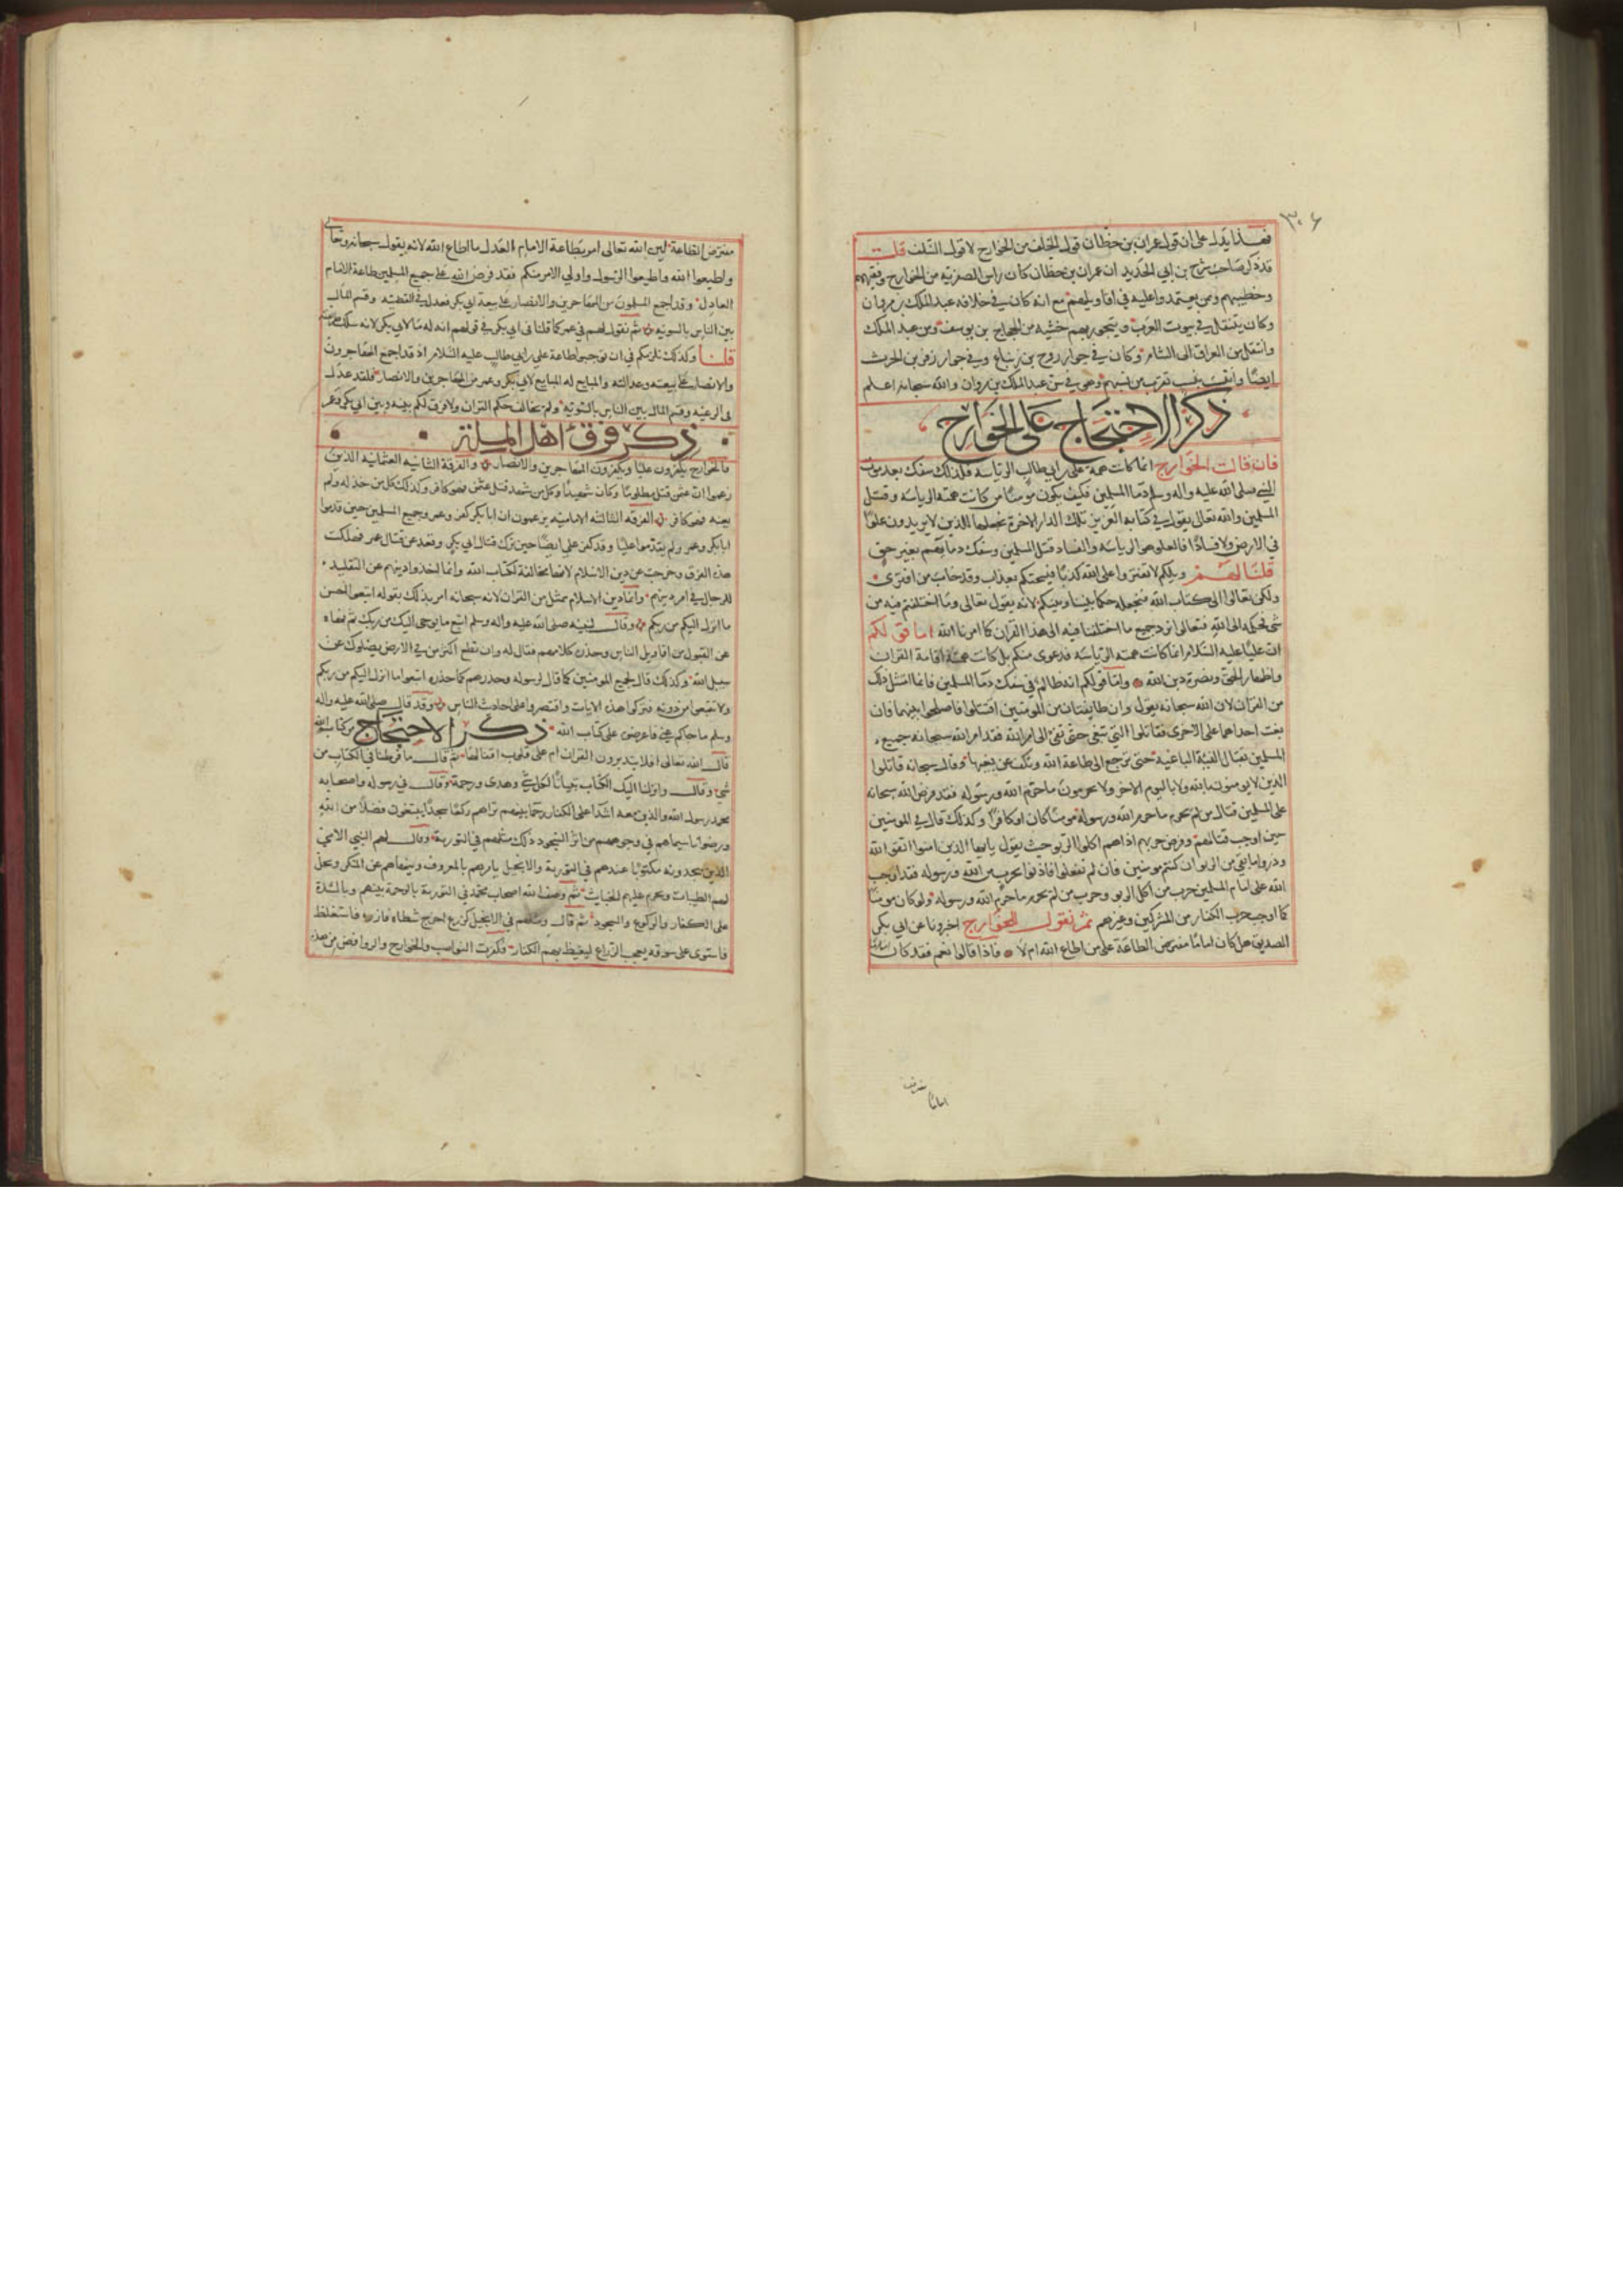 ٣٠٦
فهذا يدل على ان قول عمران بن حطان قول الخلف من الخوارج لا قول السلف قلت
قد ذكر صاحب شرح بن ابي الحديد ان عمران بن حطان كان راس الصفرية من الخوارج وفقيههم
وخطيبهم ومن يعتمدوا عليه في اقاويلهم مع انه كان في خلافه عبد الملك بن مروان
وكان يتنقل في بيوت العرب ويتجور بهم خشيه من الحجاج بن يوسف ومن عبد الملك
وانتقل من العراق الى الشام وكان في جوار روح بن زنباع وفي جوار زفر بن الحرث
ايضا وانتسب بنسب تقرب من نسبهم وهو في سن عبد الملك بن مروان والله سبحانه اعلم
ذكر الاحتجاج على الخوارج
فان قالت الخوارج انما كانت همة علي بن ابي طالب الرياسه فلذلك سفك بعد موت
النبي صلى الله عليه واله وسلم دما المسلمين فكيف يكون مومنا من كانت همته الرياسه وقتل
المسلمين والله تعالى يقول في كتابه العزيز تلك الدار الاخرة نجعلها للذين لا يريدون علوا
في الارض ولا فسادا فالعلو هو الرياسه والفساد قتل المسلمين وسفك دمايهم بغير حق
قلنا لهم ويلكم لا تفتروا على الله كذبا فيسحتكم بعذاب وقد خاب من افترى
ولكن تعالوا الى كتاب الله فنجعله حكما بيننا وبينكم لانه يقول تعالى وما اختلفتم فيه من
شي فحكمه الى الله فتعالوا نرد جميع ما اختلفنا فيه الى هذا القران كما امرنا الله اما قولكم
ان عليا عليه السلام انما كانت همته الرياسه فدعوى منكم بل كانت همته اقامة القران
واظهار الحق ونصرة دين الله واما قولكم انه ظالم في سفك دما المسلمين فانما امتثل ذلك
من القران لان الله سبحانه يقول وان طايفتان من المومنين اقتتلوا فاصلحوا بينهما فان
بغت احداهما على الاخرى فقاتلوا التي تبغي حتى تفي الى امر الله فقد امر الله سبحانه جميع
المسلمين بقتال الفية الباغية حتى ترجع الى طاعة الله وتكف عن بغيها وقال سبحانه قاتلوا
الذين لا يومنون بالله ولا باليوم الاخر ولا يحرمون ما حرم الله ورسوله فقد فرض الله سبحانه
على المسلمين قتال من لم يحرم ما حرم الله ورسوله مومنا كان او كافرا وكذلك قال في المومنين
حين اوجب قتالهم وفرض حربهم اذا هم اكلوا الربو حيث يقول يا ايها الذين امنوا اتقوا الله
وذروا ما بقي من الربو ان كنتم مومنين فان لم تفعلوا فاذنوا بحرب من الله ورسوله فقد اوجب
الله على امام المسلمين حرب من اكل الربو وحرب من لم يحرم ما حرم الله ورسوله ولو كان مومنا
كما اوجب حرب الكفار من المشركين وغيرهم ثم نقول للخوارج اخبرونا عن ابي بكر
الصديق هل كان اماما مفترض الطاعة على من اطاع الله ام لا فاذا قالوا نعم فقد كان اماما
مفترض
اماما
مفترض الطاعة لان الله تعالى امر بطاعة الامام العدل ما اطاع الله لانه يقول سبحانه وتعالى
واطيعوا الله واطيعوا الرسول واولي الامر منكم فقد فرض الله على جميع المسلمين طاعة الامام
العادل وقد اجمع المسلمون من المهاجرين والانصار على بيعة ابي بكر فعدل في القضيه وقسم المال
بين الناس بالسويه ثم نقول لهم في عمر كما قلنا في ابي بكر في قولهم انه له ما لابي بكر لانه سلك
قلنا وكذلك نلزمكم في ان توجبوا طاعة علي بن ابي طالب عليه السلام اذ قد اجمع المهاجرون
والانصار على بيعته وعدالته والمبايع له المبايع لابي بكر وعمر من المهاجرين والانصار فلقد عدل
في الرعيه وقسم المال بين الناس بالسويه ولم يخالف حكم القران ولا فرق لكم بينه وبين ابي بكر وعمر
ذكر فرق اهل الملة
فالخوارج يكفرون عليا ويكفرون المهاجرين والانصار والفرقة الثانيه العثمانيه الذين
زعموا ان عثمن قتل مظلوما وكان شهيدا وكل من شهد قتل عثمن فهو كافر وكذلك كل من خذله ولم
يعنه فهو كافر الفرقه الثالثه الاماميه يزعمون ان ابا بكر كفر وعمر وجميع المسلمين حين قدموا
ابا بكر وعمر ولم يقدموا عليا وقد كفر علي ايضا حين ترك قتال ابي بكر وقعد عن قتال عمر فهلكت
هذه الفرق وخرجت عن دين الاسلام لانها مخالفة لكتاب الله وانما اخذوا دينهم عن التقليد
للرجال في امر دينهم وانما دين الاسلام يمثل من القران لانه سبحانه امر بذلك بقوله اتبعوا احسن
ما انزل اليكم من ربكم وقال لنبيه صلى الله عليه واله وسلم اتبع ما يوحى اليك من ربك ثم نهاه
عن القبول من اقاويل الناس وحذره كلامهم فقال له وان تطع اكثر من في الارض يضلوك عن
سبيل الله وكذلك قال لجميع المومنين كما قال لرسوله وحذرهم كما حذره اتبعوا ما انزل اليكم من ربكم
ولا تتبعوا من دونه فتركوا هذه الايات واقتصروا على احاديث الناس وقد قال صلى الله عليه واله
وسلم ما جاكم عني فاعرضوه على كتاب الله ذكر الاحتجاج من كتاب الله
قال الله تعالى افلا يتدبرون القران ام على قلوب اقفالها ثم قال ما فرطنا في الكتاب من
شي وقال وانزلنا اليك الكتاب تبيانا لكل شي وهدى ورحمة وقال في رسوله واصحابه
محمد رسول الله والذين معه اشدا على الكفار رحما بينهم تراهم ركعا سجدا يبتغون فضلا من الله
ورضوانا سيماهم في وجوههم من اثر السجود ذلك مثلهم في التورية وقال لهم النبي الامي
الذين يجدونه مكتوبا عندهم في التورية والانجيل يامرهم بالمعروف وينهاهم عن المنكر ويحل
لهم الطيبات ويحرم عليهم الخبايث ثم وصف الله اصحاب محمد في التورية بالرحمة بينهم وبالشدة
على الكفار والركوع والسجود ثم قال ومثلهم في الانجيل كزرع اخرج شطاه فازره فاستغلظ
فاستوى على سوقه يعجب الزراع ليغيظ بهم الكفار فكفرت النواصب والخوارج والروافض من هذه